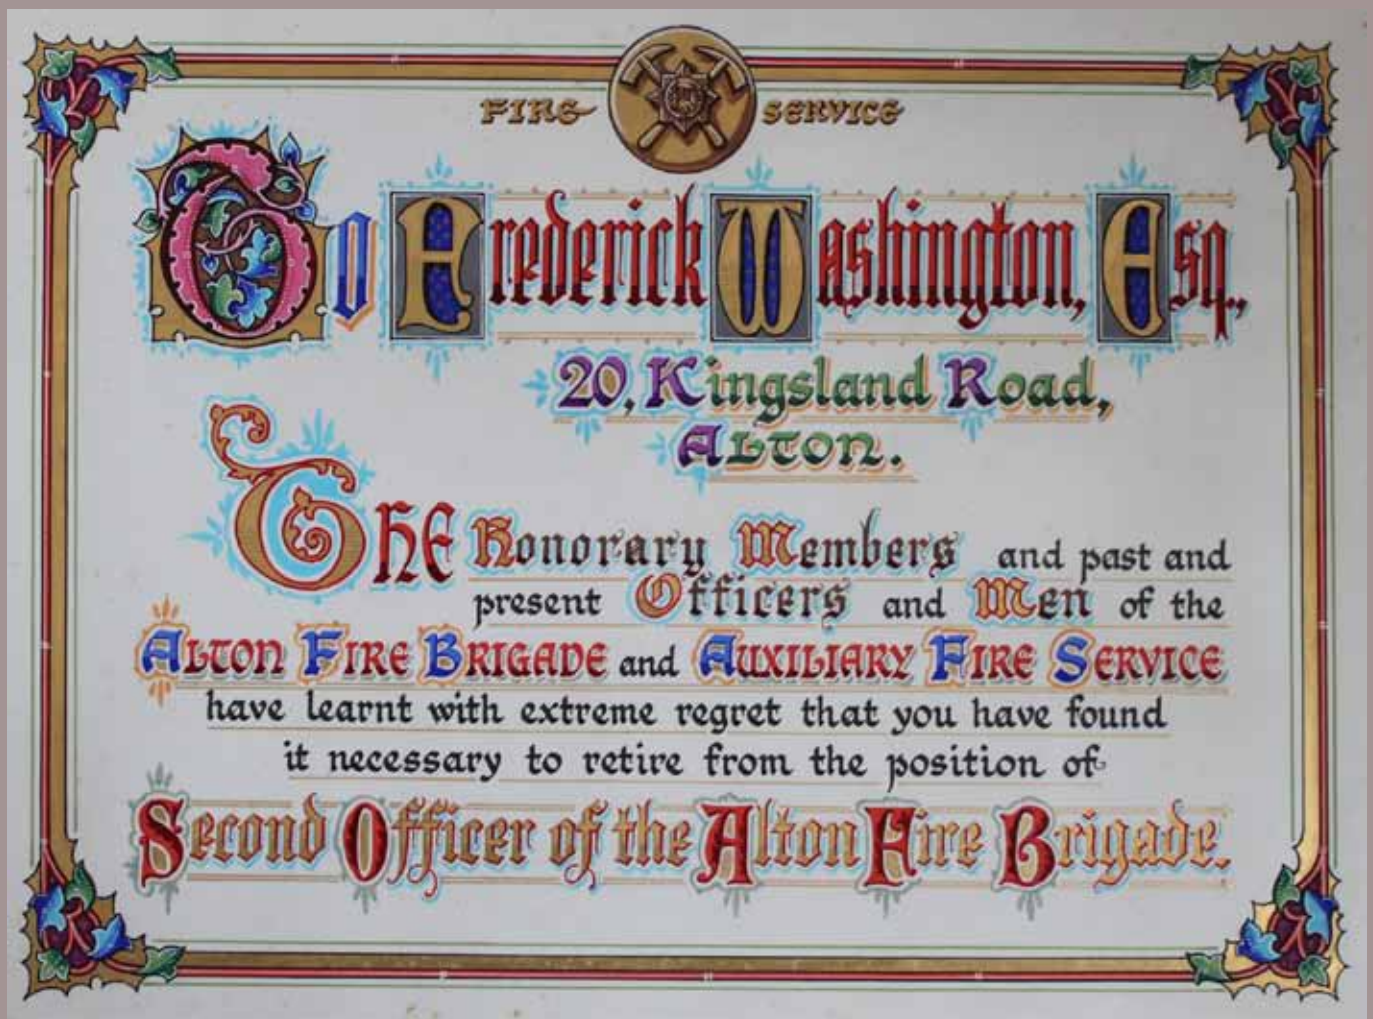 FIRE SERVICE
To Frederick Washington, Esq.,
20, Kingsland Road,
ALTON.
THE Honorary Members and past and
present Officers and Men of the
ALTON FIRE BRIGADE and AUXILIARY FIRE SERVICE
have learnt with extreme regret that you have found
it necessary to retire from the position of
Second Officer of the Alton Fire Brigade.